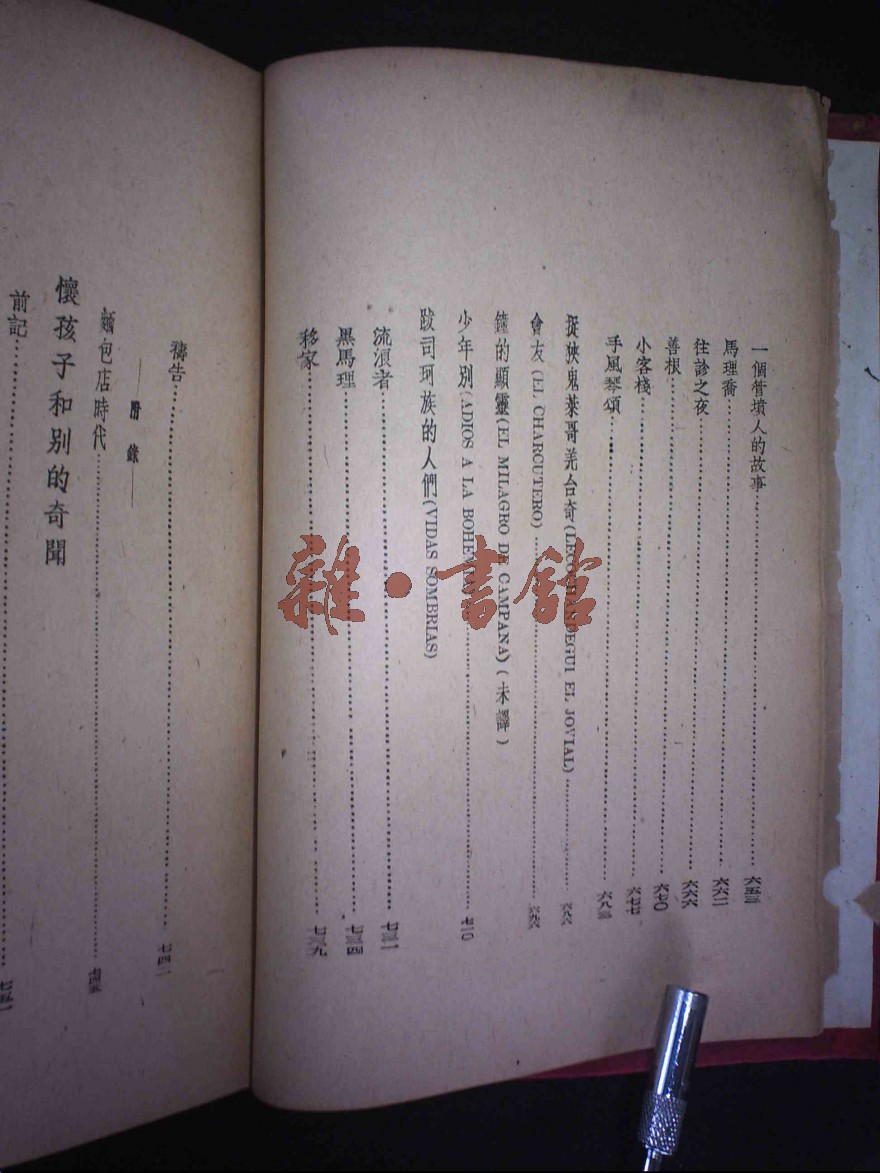 一個管墳人的故事……六五三
馬理喬……六六二
往診之夜……六六六
善根……六七〇
小客棧……六七七
手風琴頌……六八三
促狹鬼萊哥羌台奇(LECOCHANDEGUI EL JOVIAL)……六八六
會友(EL CHARCUTERO)……六九六
鐘的顯靈(EL MILAGRO DE CAMPANA)(未譯)
少年別(ADIOS A LA BOHEMIA)……七一〇
跋司珂族的人們(VIDAS SOMBRIAS)
流浪者……七三一
黑馬理……七三四
移家……七三九
禱告……七四二
——附錄——
麵包店時代……七四五
懷孩子和別的奇聞
前記……七五一
雜·書館